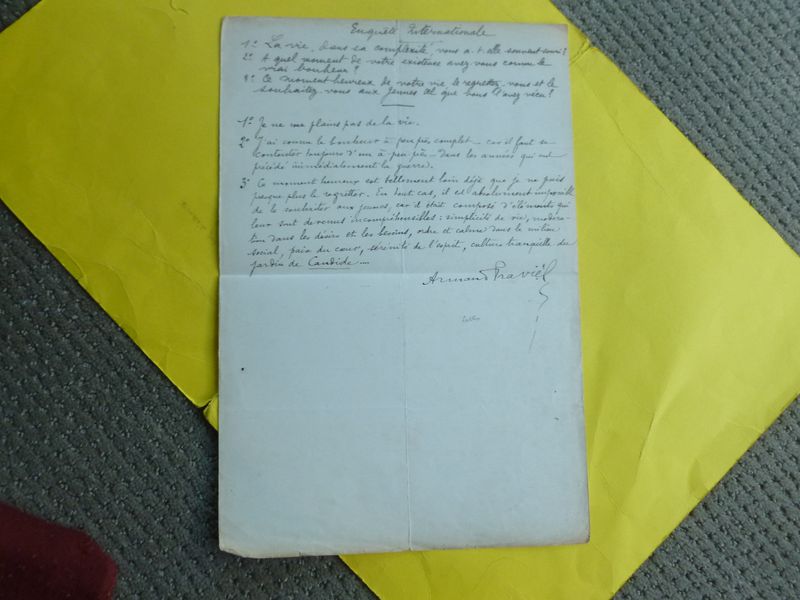 Enquête Internationale
1º La vie, dans sa complexité vous a-t-elle souvent souri?
2º A quel moment de votre existence avez-vous connu le
vrai bonheur?
3º Ce moment heureux de votre vie le regrettez-vous et le
souhaitez-vous aux jeunes tel que vous l'avez vécu?
1º Je ne me plains pas de la vie.
2º J'ai connu le bonheur à peu près complet — car il faut se
contenter toujours d'un à-peu-près — dans les années qui ont
précédé immédiatement la guerre.
3º Ce moment heureux est tellement loin déjà que je ne puis
presque plus le regretter. En tout cas, il est absolument impossible
de le souhaiter aux jeunes, car il était composé d'éléments qui
leur sont devenus incompréhensibles: simplicité de vie, modéra-
tion dans les désirs et les besoins, ordre et calme dans le milieu
social, paix du cœur, sérénité de l'esprit, culture tranquille du
jardin de Candide....
Armand Praviel